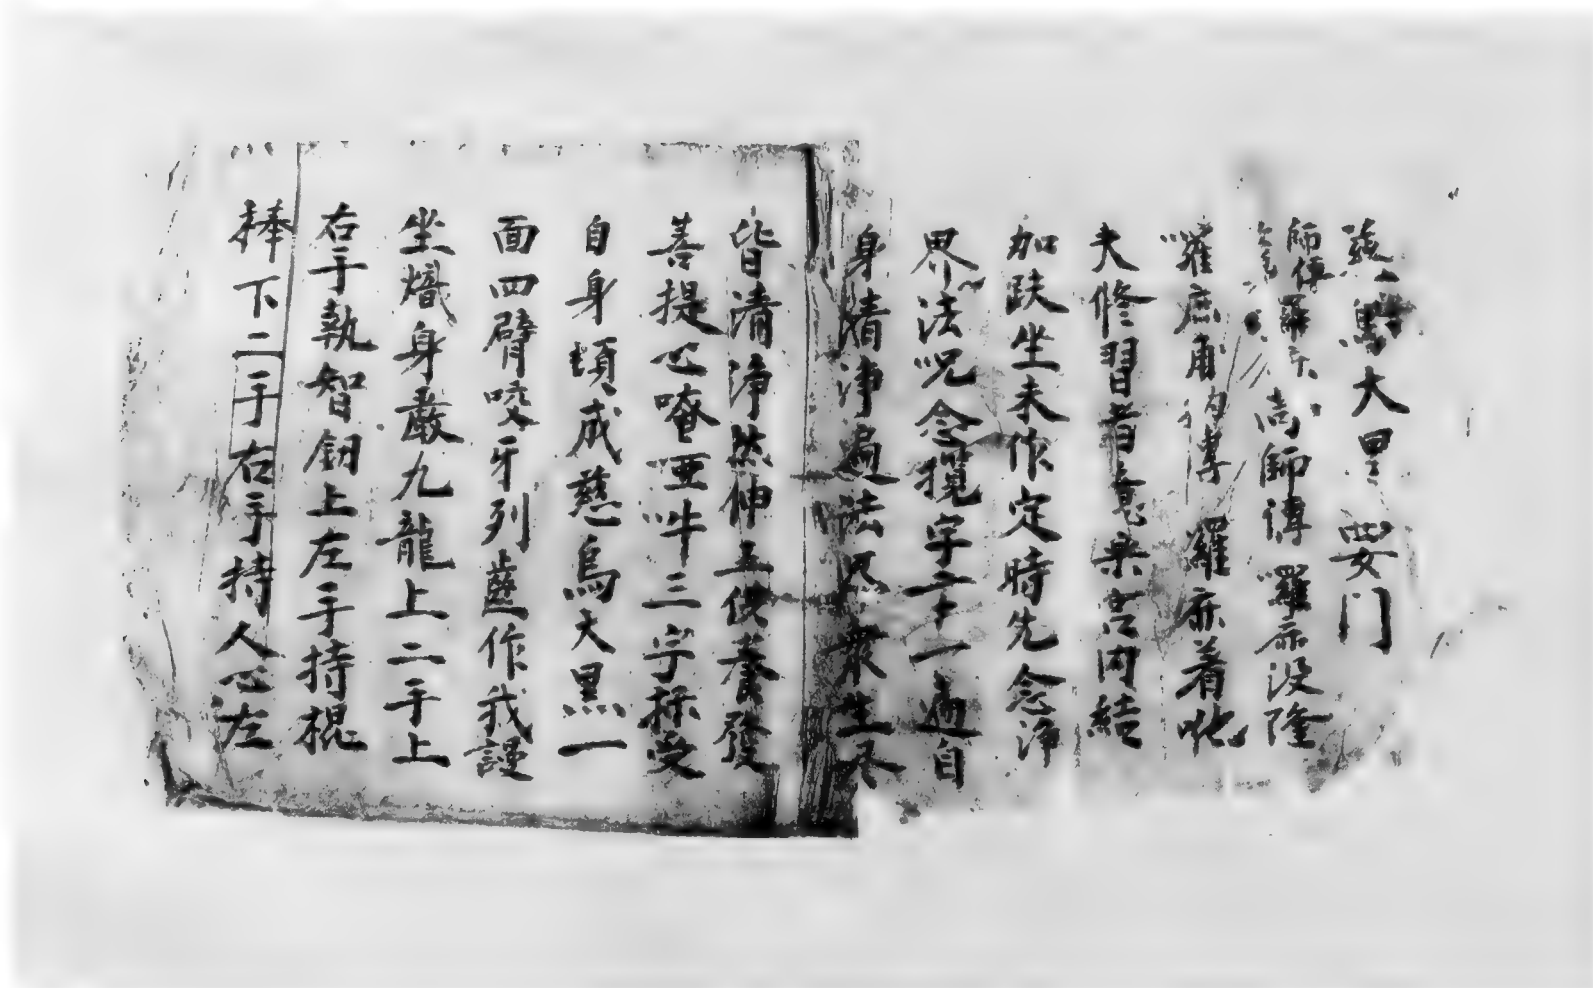 慈烏大黑 要门
師傅 羅 尚師傅囉羅亦没隆
囉庶甫 傳 囉亦着吪
夫修習者竟 内結
加趺坐未作定時先念净
界法呪念攬字二十一遍自
身清净遍法界衆生界
皆清净然伸五供養發
菩提心唵亜吽三字採受
自身頓成慈烏大黑一
面四臂咬牙列齒作我謾
坐熾身嚴九龍上二手上
右手執智釰上左手持棍
棒下二手右手持人心左